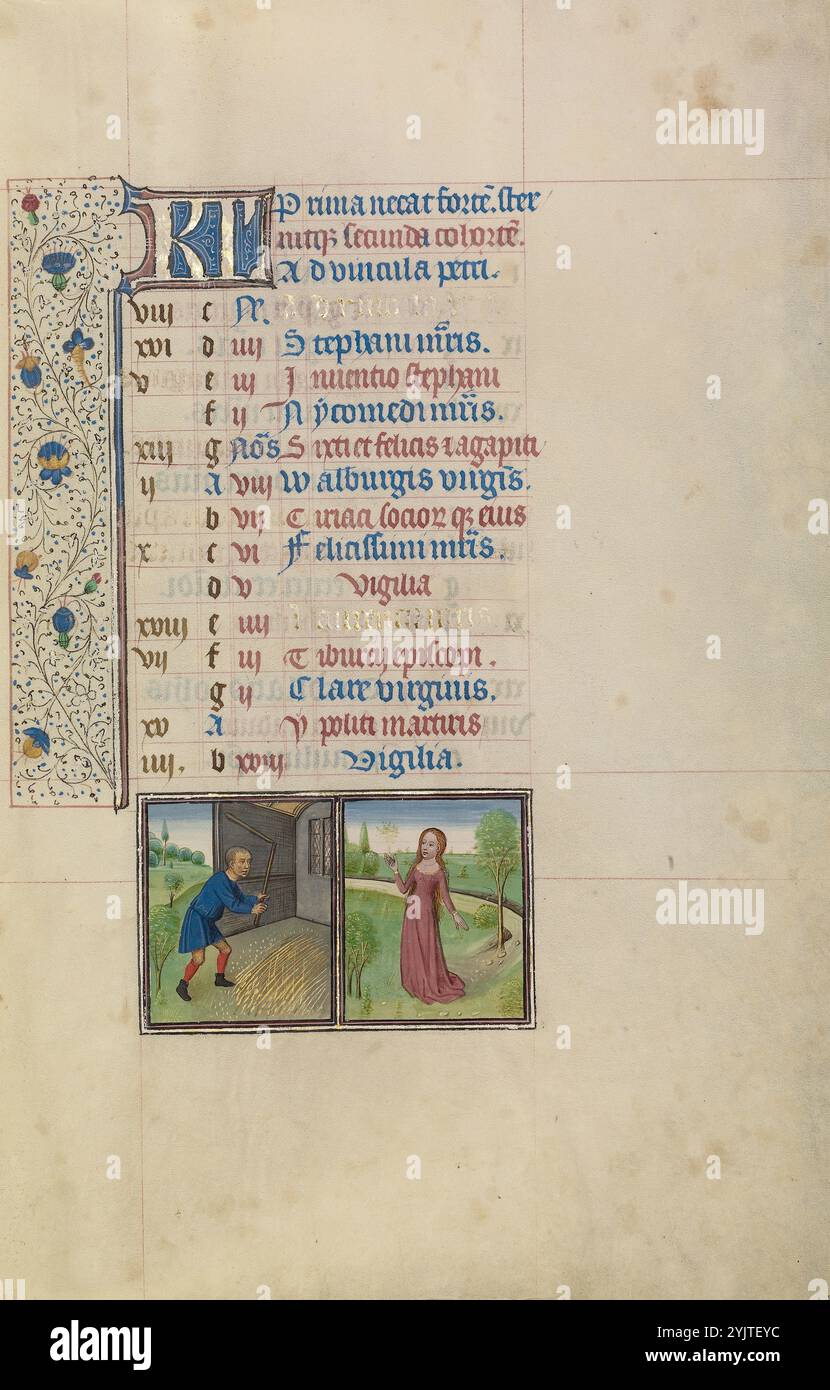 KL Prima necat fortē. ster
nitqȝ secunda cohortē.
Ad vincula petri.
viii c N̄.
xvi d iiii Stephani m̄ris.
v e iii Inuentio stephani
f ii Nycomedi m̄ris.
xiii g Nōs Sixti et felicis ⁊ agapiti
ii A viii Walburgis virgīs.
b vii Ciriaci socior qȝ eius
x c vi Felicissimi m̄ris.
d v Vigilia
xviii e iiii
vii f iii Tiburcij episcopi.
g ii Clare virginis.
xv A Ypoliti martiris
iiii. b xviiij Vigilia.
alamy
Image ID: 2YJTEYC
www.alamy.com